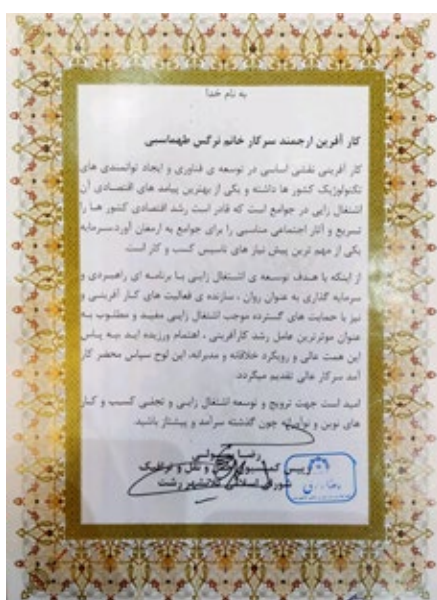 به نام خدا
کار آفرین ارجمند سرکار خانم نرگس طهماسبی
کار آفرینی نقشی اساسی در توسعه ی فناوری و ایجاد توانمندی های
تکنولوژیک کشور ها داشته و یکی از بهترین پیامد های اقتصادی آن
اشتغال زایی در جوامع است که قادر است رشد اقتصادی کشور هـا را
تسریع و آثار اجتماعی مناسبی را برای جوامع به ارمغان آورد.سرمایه
یکی از مهم ترین پیش نیاز های تاسیس کسب و کار است.
از اینکه با هدف توسعه ی اشتغال زایی با برنامه ای راهبردی و
سرمایه گذاری به عنوان روان ، سازنده ی فعالیت های کار آفرینی و
نیز با حمایت های گسترده موجب اشتغال زایی مفید و مطلوب به
عنوان موثرترین عامل رشد کارآفرینی ، اهتمام ورزیده اید به پاس
این همت عالی و رویکرد خلاقانه و مدبرانه، این لوح سپاس محضر کار
آمد سرکار عالی تقدیم میگردد.
امید است جهت ترویج و توسعه اشتغال زایی و تجلی کسب و کار
های نوین و نوآورانه چون گذشته سرآمد و پیشتاز باشید.
رضا
رییس کمیسیون و نقل و ترافیک
شورای اسلامی کلانشهر رشت